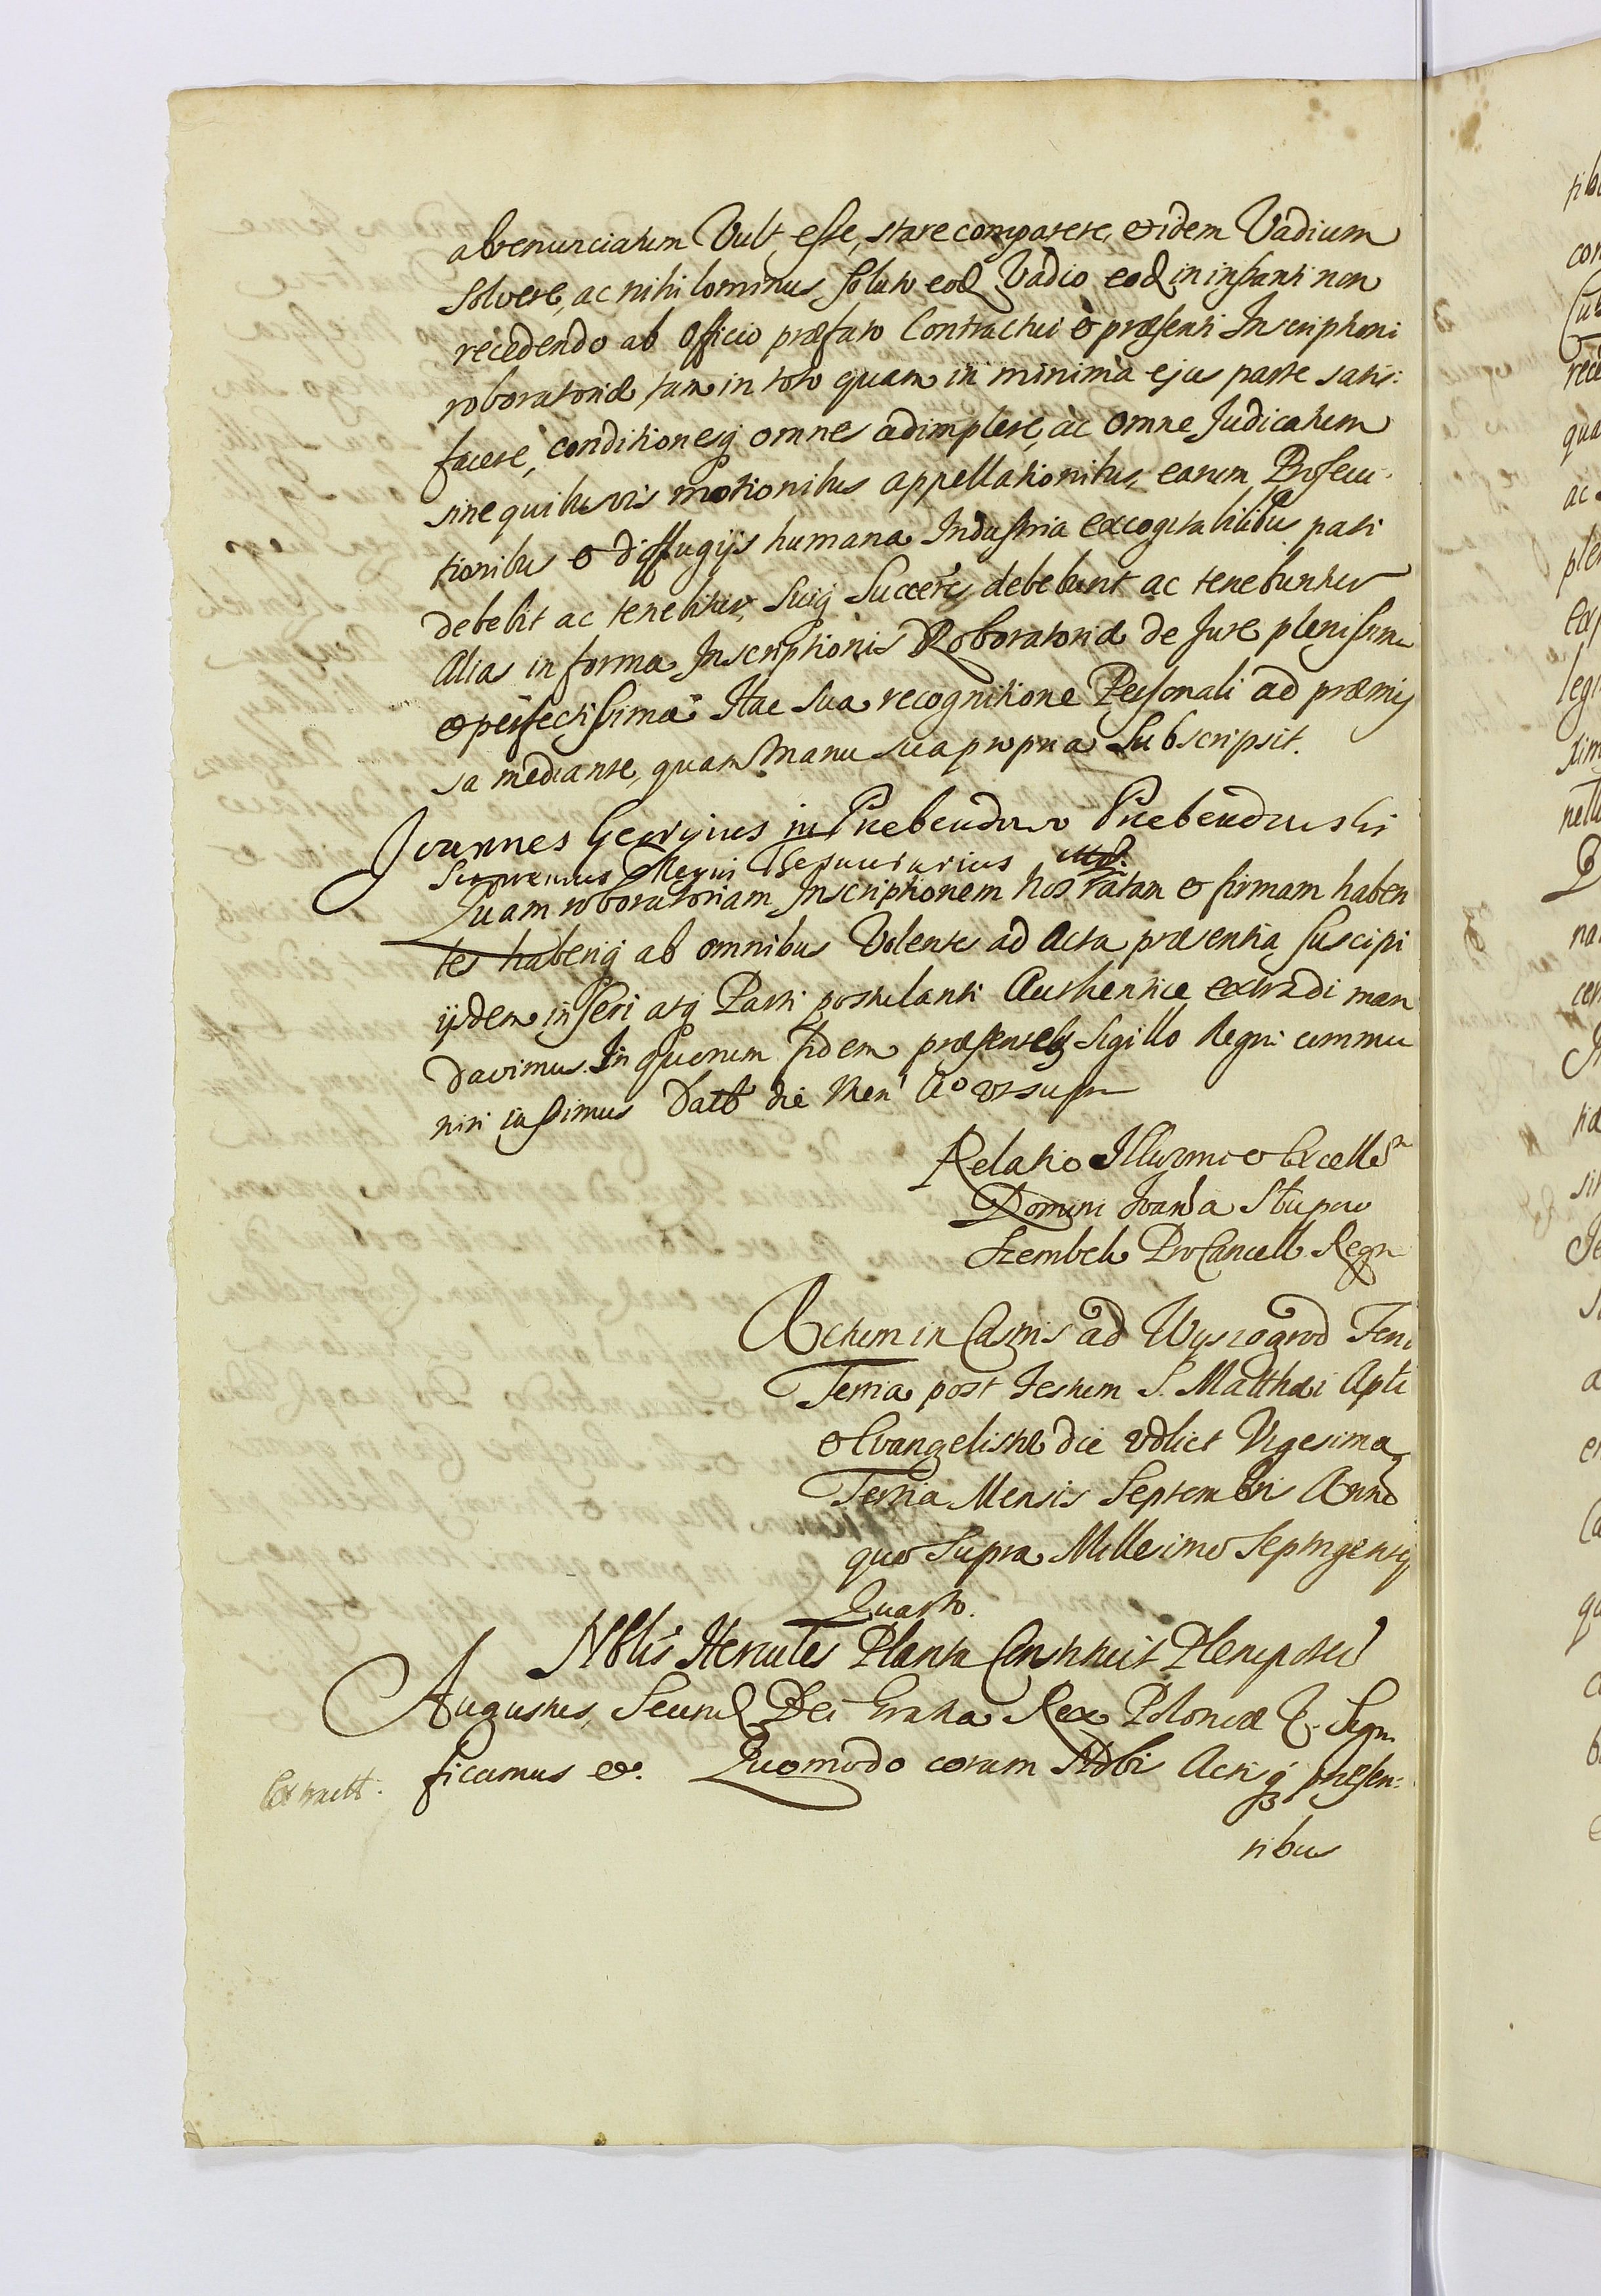 abrenunciatum Vult esse, stare comparere, eidem Vadium
solvere, ac nihilominus soluto eod Vadio eod in instanti non
recedendo ab officio præfato Contractui & præsenti Inscriptioni
roboratoriæ tam in toto quam in minima ejus parte satis:
facere, conditionesq omnes adimplere, ac omne Judicatum
sine quibusvis motionibus appellationibus, earum Prosecu-
tionibus & diffugijs humana Industria excogitabilibus pati
debebit ac tenebitur, Suiq Succeres debebunt ac tenebuntur
Alias in forma Inscriptionis Roboratoriæ de Jure plenissima
& perfectissima Hac sua recognitione Personali ad præmis
sa mediante, quam Manu sua propria Subscripsit.
Joannes Georgius in Prebendowo Prebendowski
Supremus Regni Thesaurarius mp.
Quam roboratoriam Inscriptionem Nos ratam & firmam haben
tes haberiq ab omnibus Volentes ad Acta præsentia suscipi
ijsdem inseri atq Parti postulanti Authentice extradi man
davimus. In quorum fidem præsentes Sigillo Regni commu
niri iussimus Datt die Men Ao ut supr
Relatio Illusrmi & Excellen
Domini Joan a Słupow
Szembek ProCancell Regn
Actum in Castris ad Wyszogrod Feri
Tertia post Festum S. Matthæi Apli
& Evangelistæ die vdlict Vigesima
Tertia Mensis Septembris Anno
quo Supra Millesimo Septingentes
Quarto.
Nblis Hercules Planta Constituit Plenipoten
Augustus Secund Dei Gratia Rex Poloniæ &. Sign
ficamus &. Quomodo coram Nobis Actisq præsen:
Extractt.
tibus